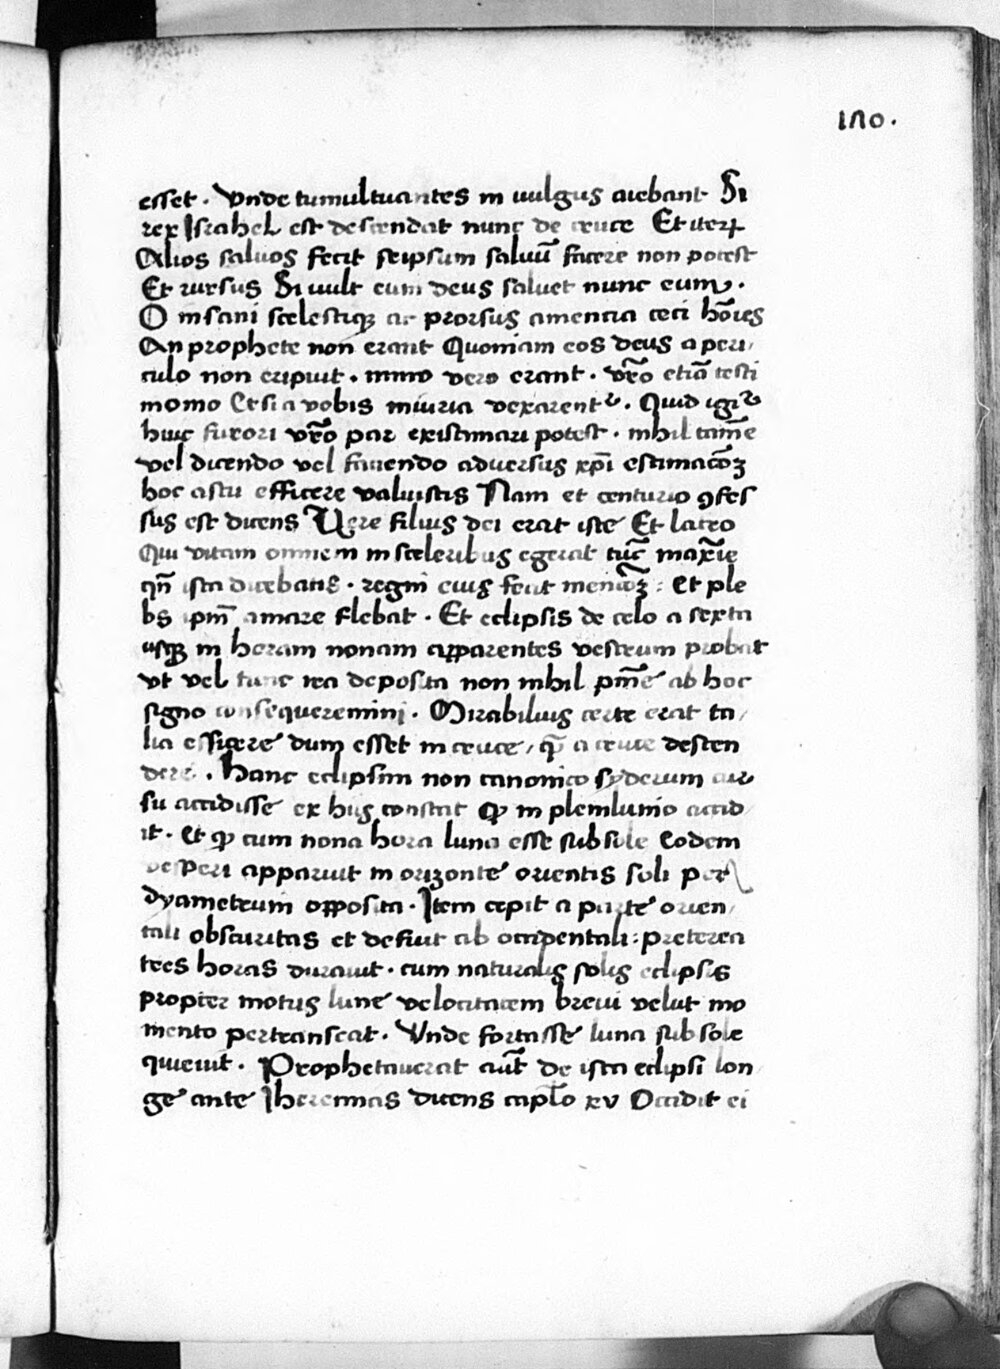 170.
esset. Vnde tumultuantes in uulgus aiebant Si
rex Israhel est descendat nunc de cruce Et iteꝝ
Alios saluos fecit seipsum saluū facere non potest
Et rursus Si uult eum deus saluet nunc eum.
O insani scelestiqꝫ ac prorsus amentia ceci hoīes
An prophete non erant Quoniam eos deus a peri/
culo non eripuit. immo vero erant. vr̄o etiā testi
monio Etsi a vobis iniuria vexarentᷣ. Quid igitᷣ
huic furori vr̄o par existimari potest. nihil tamē
vel dicendo vel faciendo aduersus xp̄i estimacōꝫ
hoc astu efficere valuistis Nam et centurio ꝯfes
sus est dicens Vere filius dei erat iste Et latro
Qui vitam omnem in sceleribus egerat tūc maxīe
qn̄ ista dicebatis. regni eius fecit mencōꝫ: Et ple
bs ipm̄ amare flebat. Et eclipsis de celo a sexta
usqꝫ in horam nonam apparentes vestrum probat
vt vel tunc rea deposita non nihil pm̄e ab hoc
signo consequeremini. Mirabilius certe erat ta/
lia efficere dum esset in cruce, qͣ̄ a cruce descen
dere. Hanc eclipsim non canonico syderum cur
su accidisse ex hijs constat Qꝫ in plenilunio accid/
it. Et qꝫ cum nona hora luna esse sub sole Eodem
vesperi apparuit in orizonte orientis soli per
dyametrum opposita. Item cepit a parte orien/
tali obscuritas et defiuit ab occidentali: preterea
tres horas durauit. cum naturalis solis eclipsis
propter motus lune velocitatem breui velut mo
mento pertranseat. Vnde fortasse luna sub sole
quieuit. Prophetauerat aut̄ de ista eclipsi lon
ge ante Iheremias dicens cap̄lo xv Occidit ei